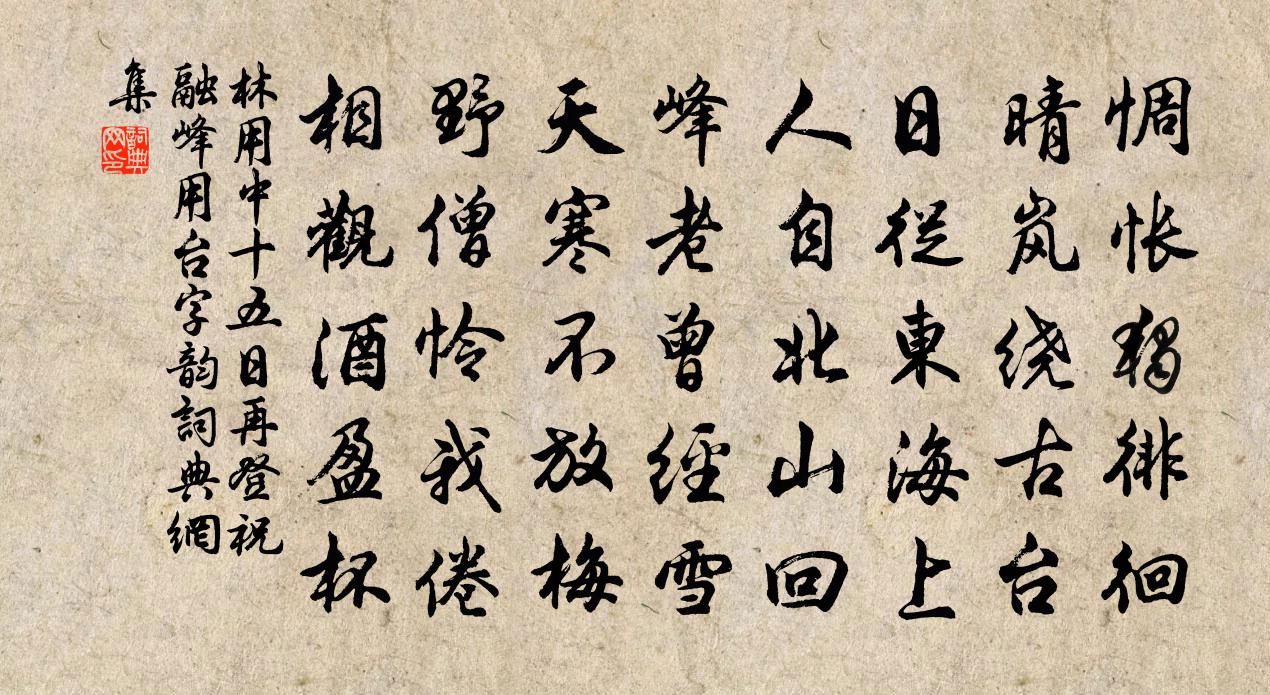 惆怅獨徘徊
晴岚绕古台
日從東海上
人自北山回
峰老曾經雪
天寒不放梅
野僧怜我倦
相觀酒盈杯
林用中十五日再登祝
融峰用台字韵詞典網
集
詞典網印